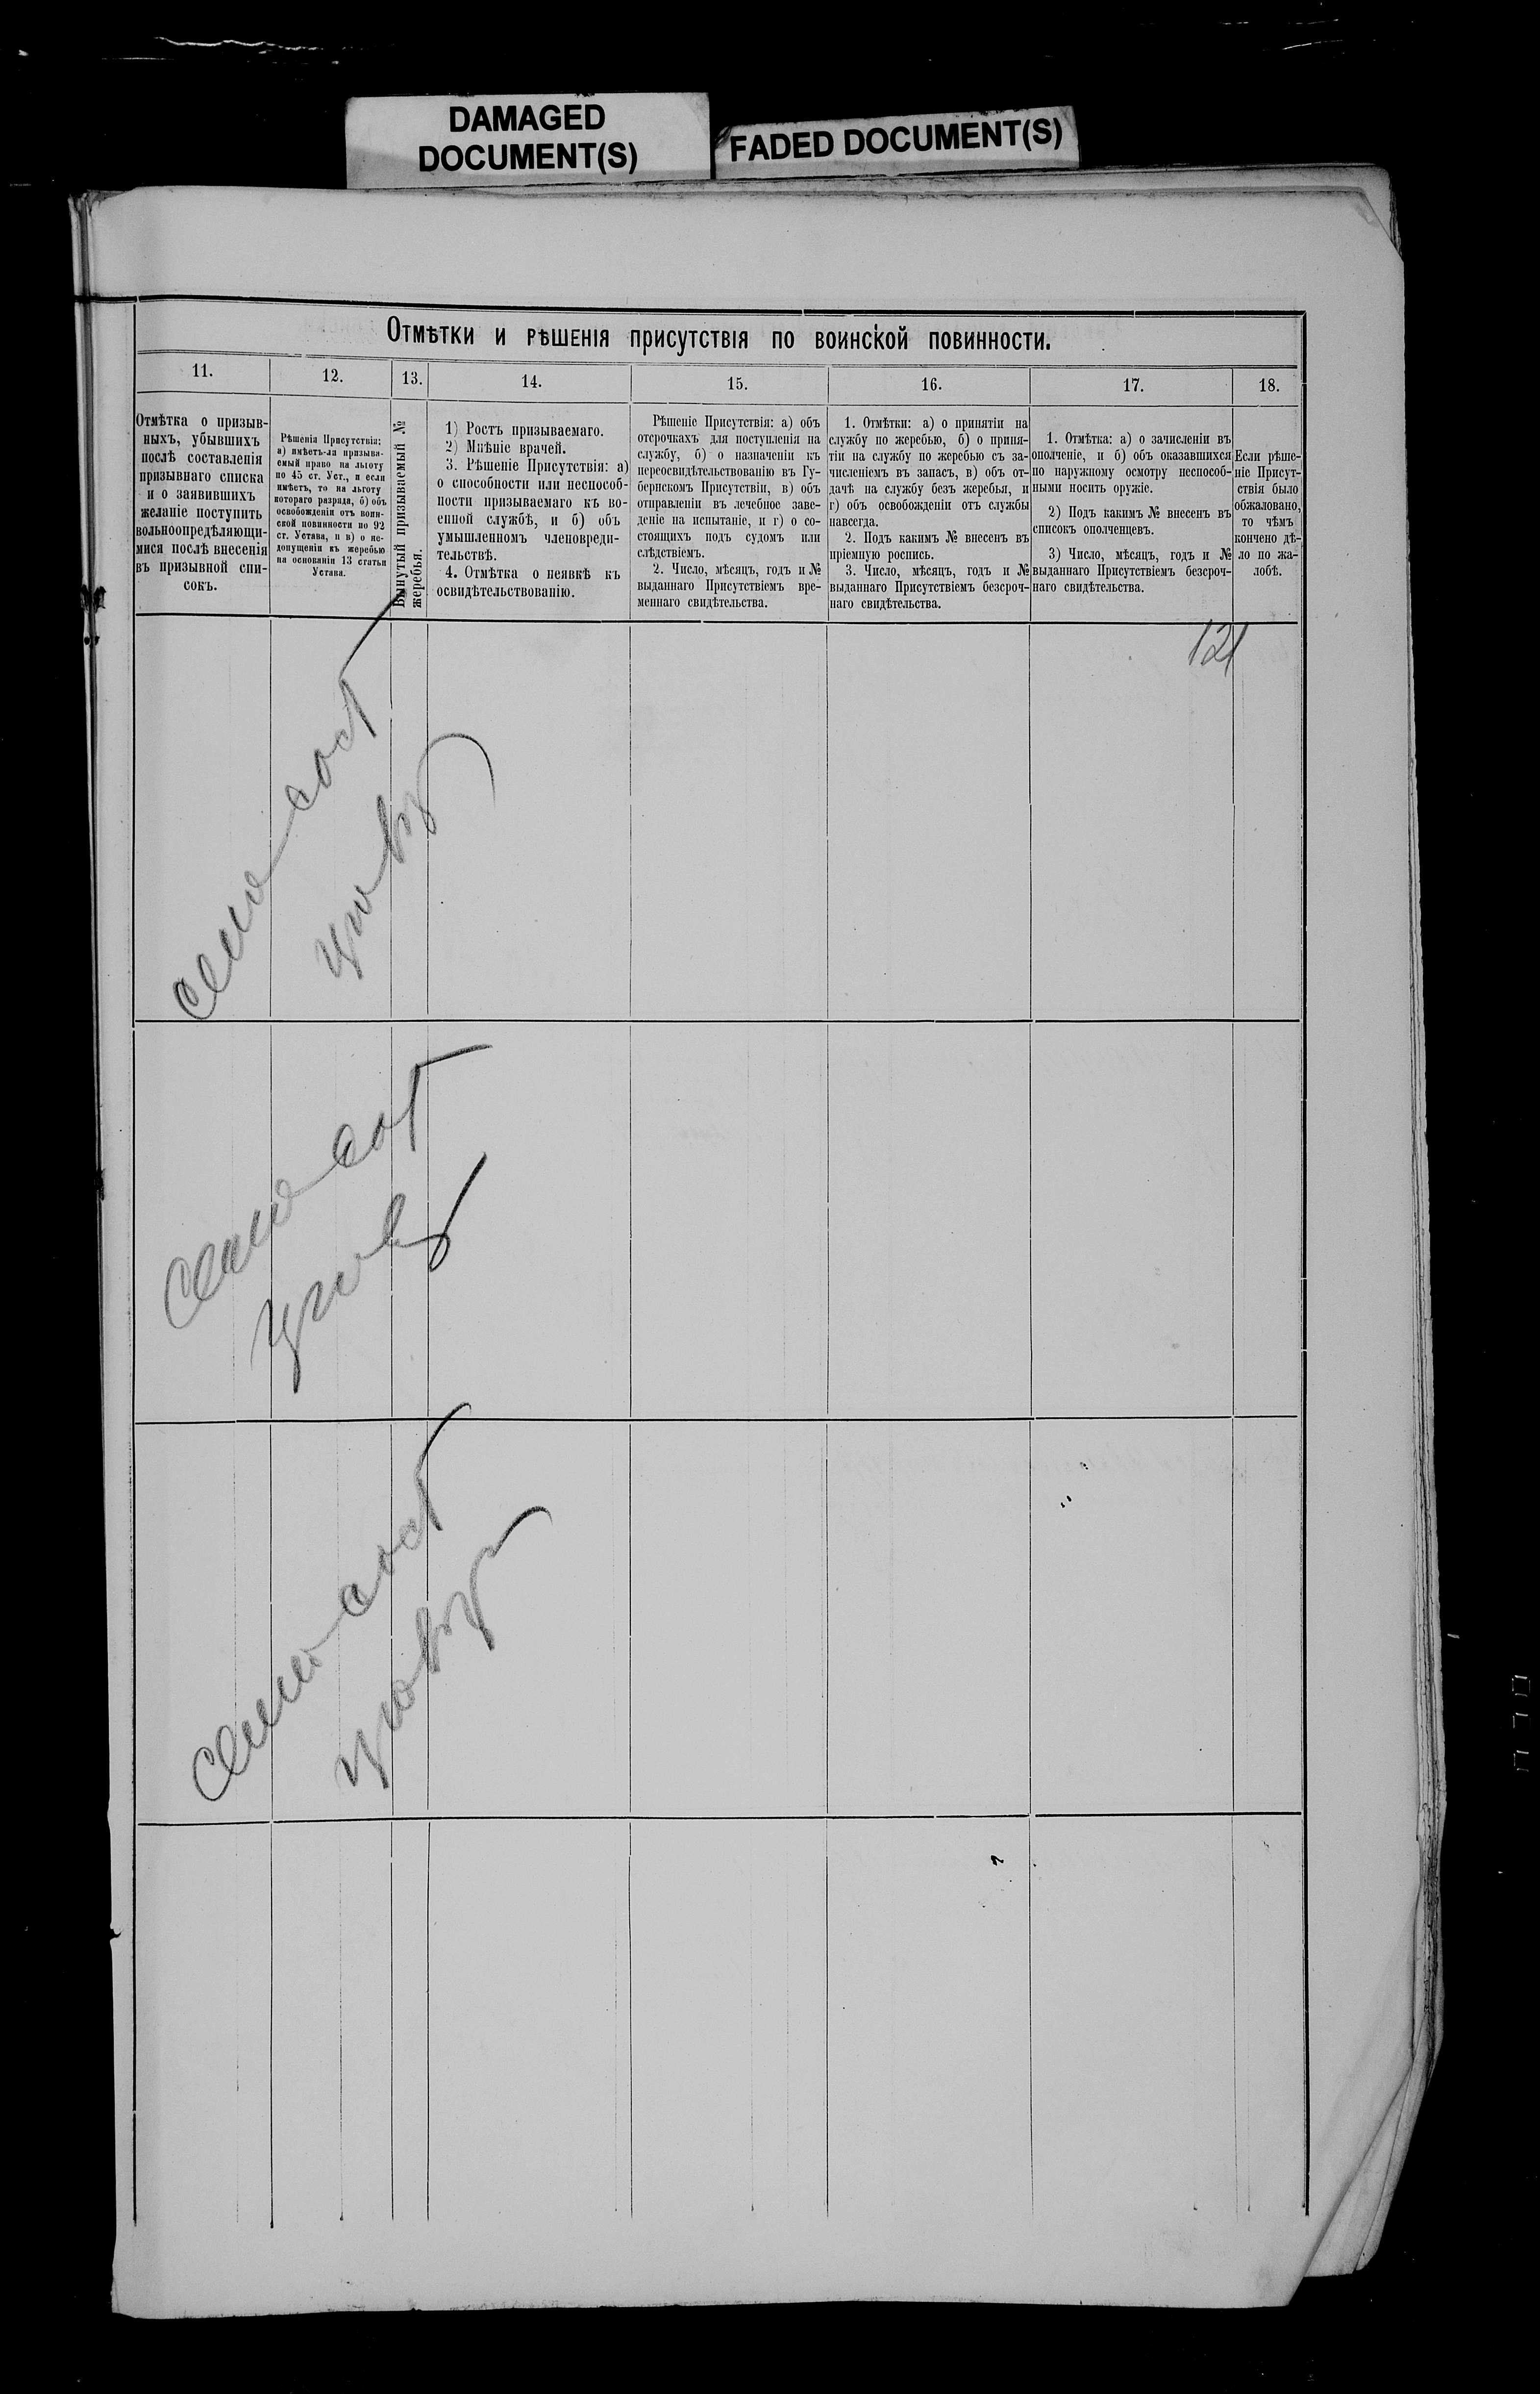 DAMAGED
DOCUMENT(S)
FADED DOCUMENT(S)
Отмѣтки и рѣшенія присутствія по воинской повинности.
11.
12.
13.
14.
15.
16.
17.
18.
Отмѣтка о призыв-
ныхъ, убывшихъ
послѣ составленія
призывнаго списка
и о заявившихъ
желаніе поступить
вольноопредѣляющи-
мися послѣ внесенія
въ призывной спи-
сокъ.
Рѣшенія Присутствія:
а) имѣетъ-ли призыва-
емый право на льготу
по 45 ст. Уст., и если
имѣетъ, то на льготу
котораго разряда, б) объ
освобожденіи отъ воин-
ской повинности по 92
ст. Устава, и в) о не-
допущеніи къ жеребью
на основаніи 13 статьи
Устава.
Вынутый призываемый №
жеребья.
1) Ростъ призываемаго.
2) Мнѣніе врачей.
3. Рѣшеніе Присутствія: а)
о способности или неспособ-
ности призываемаго къ во-
енной службѣ, и б) объ
умышленномъ членовреди-
тельствѣ.
4. Отмѣтка о неявкѣ къ
освидѣтельствованію.
Рѣшеніе Присутствія: а) объ
отсрочкахъ для поступленія на
службу, б) о назначеніи къ
переосвидѣтельствованію въ Гу-
бернскомъ Присутствіи, в) объ
отправленіи въ лечебное заве-
деніе на испытаніе, и г) о со-
стоящихъ подъ судомъ или
слѣдствіемъ.
2. Число, мѣсяцъ, годъ и №
выданнаго Присутствіемъ вре-
меннаго свидѣтельства.
1. Отмѣтки: а) о принятіи на
службу по жеребью, б) о приня-
тіи на службу по жеребью съ за-
численіемъ въ запасъ, в) объ от-
дачѣ на службу безъ жеребья, и
г) объ освобожденіи отъ службы
навсегда.
2. Подъ какимъ № внесенъ въ
пріемную роспись.
3. Число, мѣсяцъ, годъ и №
выданнаго Присутствіемъ безсроч-
наго свидѣтельства.
1. Отмѣтка: а) о зачисленіи въ
ополченіе, и б) объ оказавшихся
по наружному осмотру неспособ-
ными носить оружіе.
2) Подъ какимъ № внесенъ въ
списокъ ополченцевъ.
3) Число, мѣсяцъ, годъ и №
выданнаго Присутствіемъ безсроч-
наго свидѣтельства.
Если рѣше-
ніе Присут-
ствія было
обжаловано,
то чѣмъ
кончено дѣ-
ло по жа-
лобѣ.
121